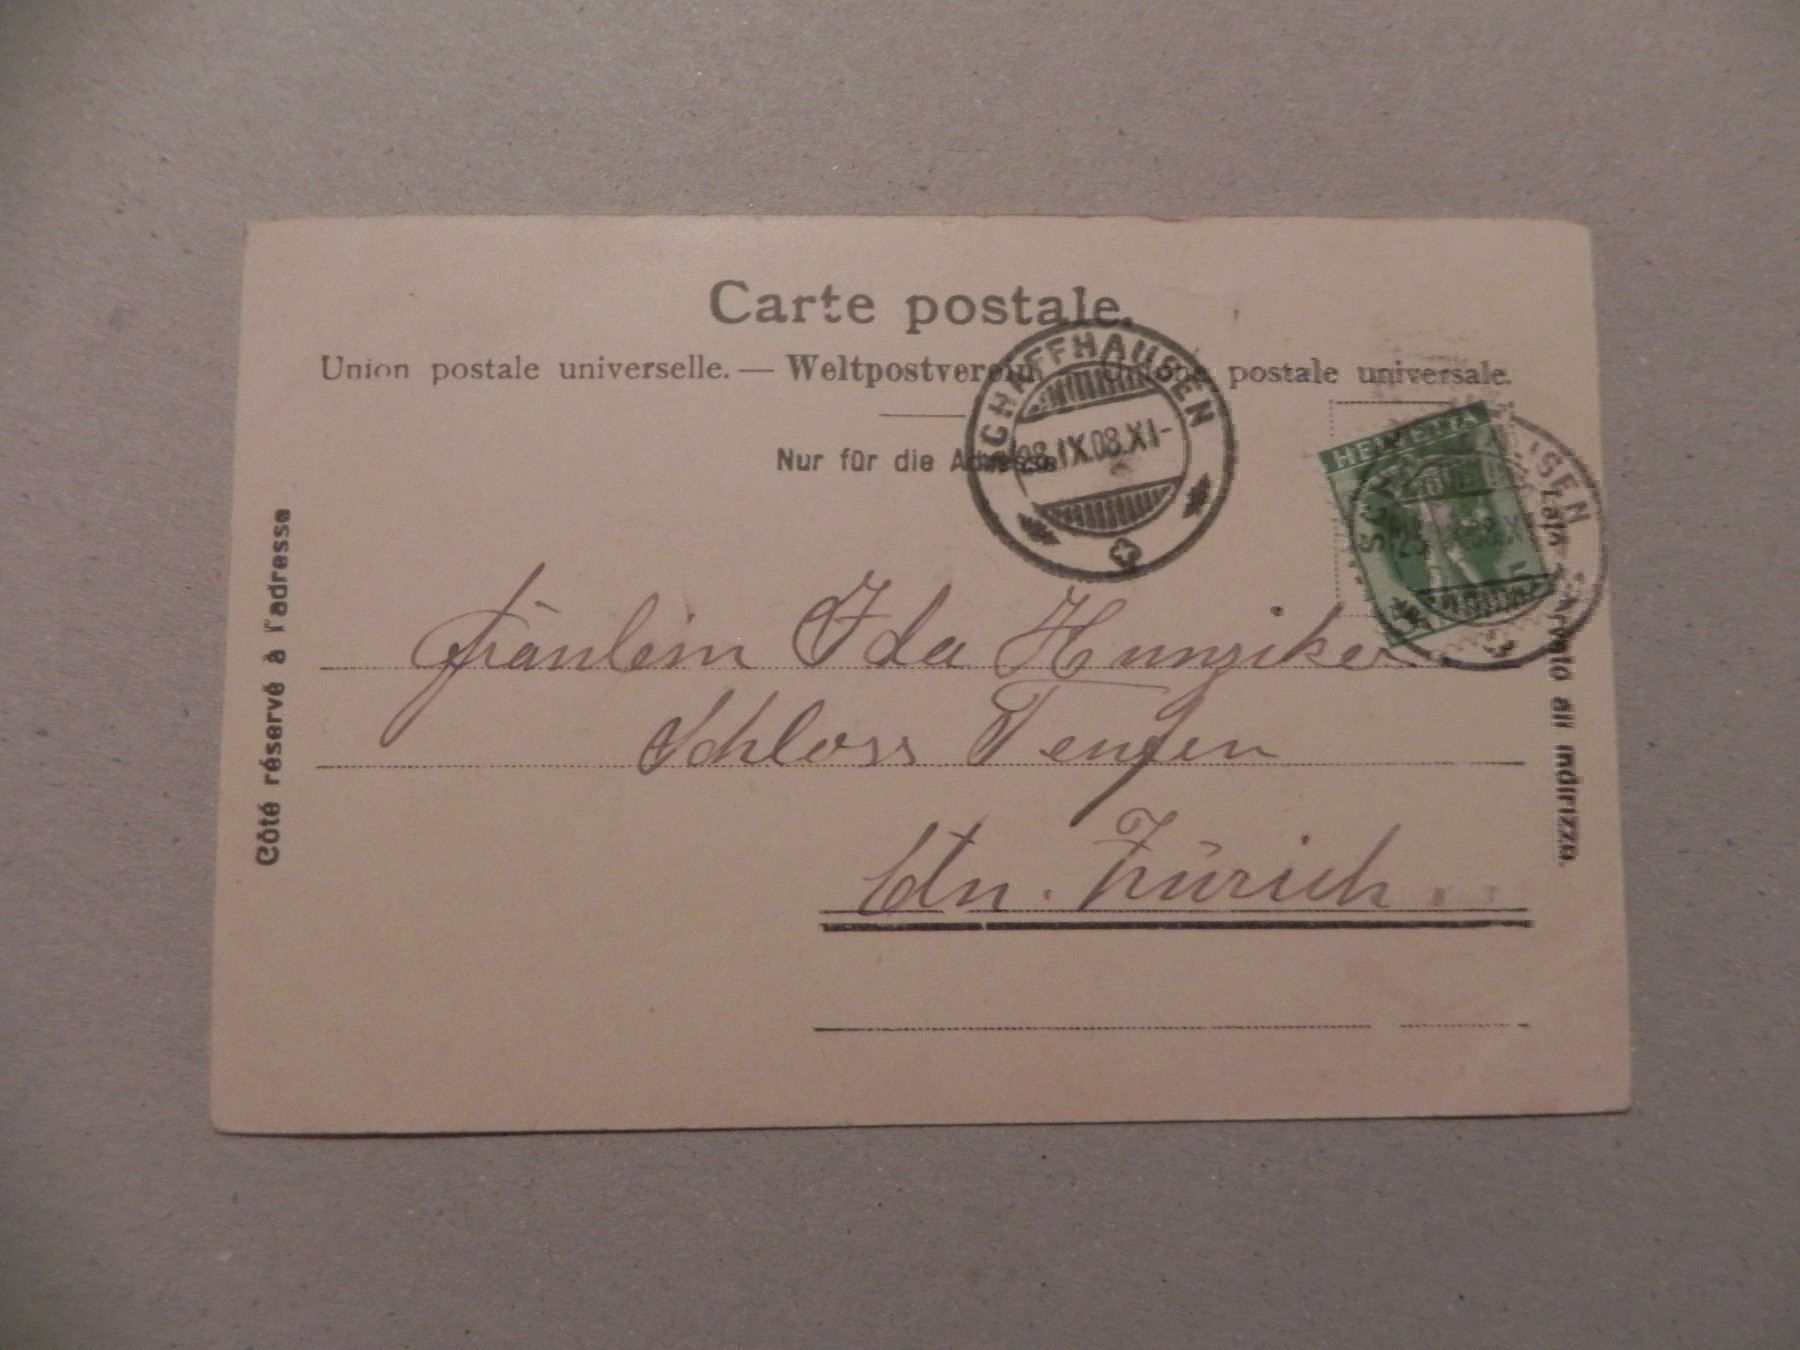 Carte postale.
Union postale universelle. — Weltpostverein. postale universale.
Nur für die Adresse
SCHAFFHAUSEN
28.IX.08.XI-
HELVETIA
Côté réservé à l'adresse
Lato riservato all indirizzo.
Fräulein Ida Hunziker
Schloss Teufen
Ctn. Zürich.